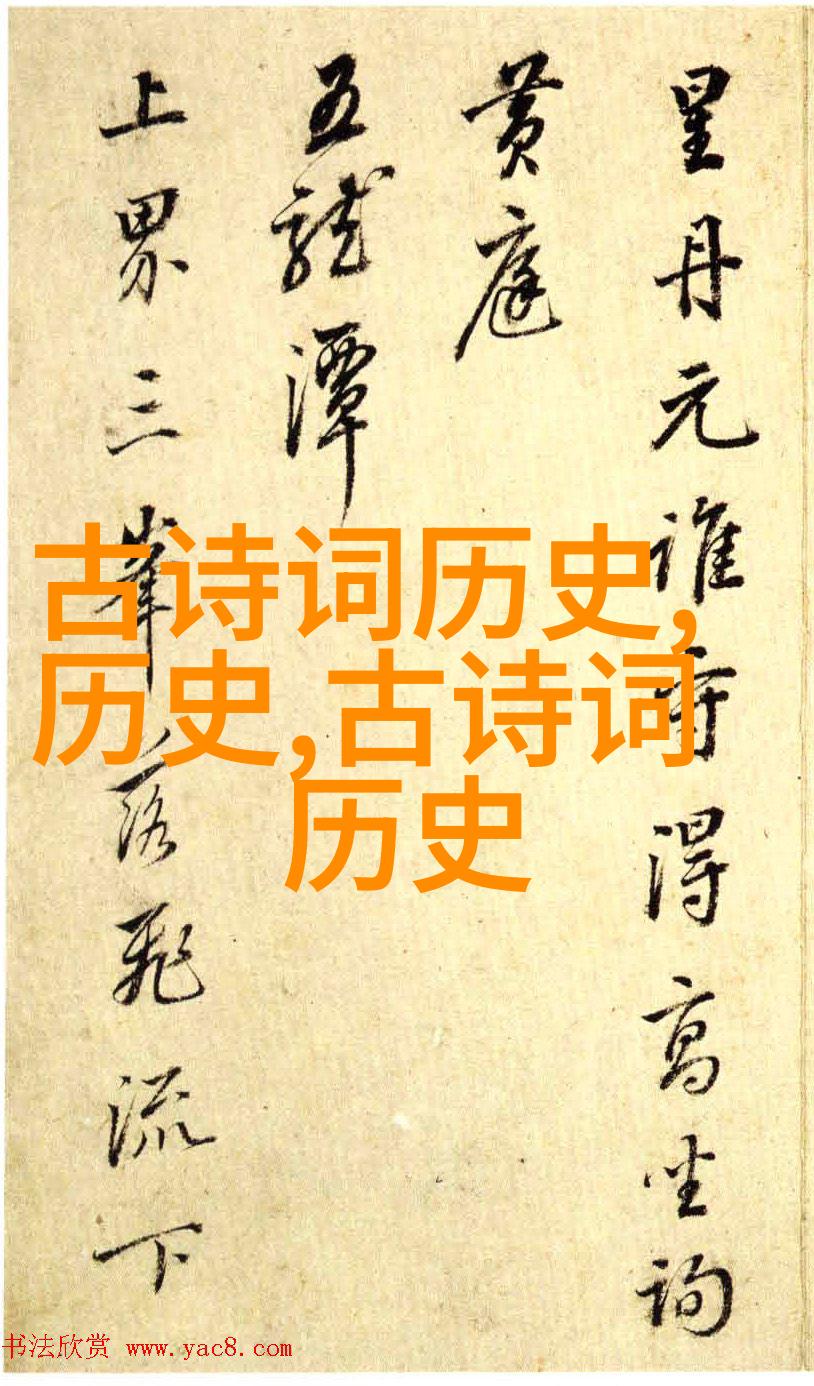 星丹元谁守得高坐询
黄庭
五龙潭
上界三峰落飞流下
古诗词历史,
历史,古诗词
历史
书法欣赏 www.yac8.com